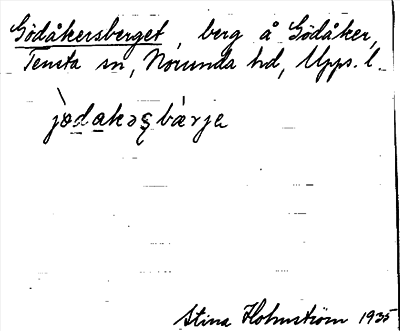 Gödåkersberget, berg å Gödåker,
Tensta sn, Norunda hd, Upps. l.
jø̀dakəʂbærja
Stina Holmström 1935